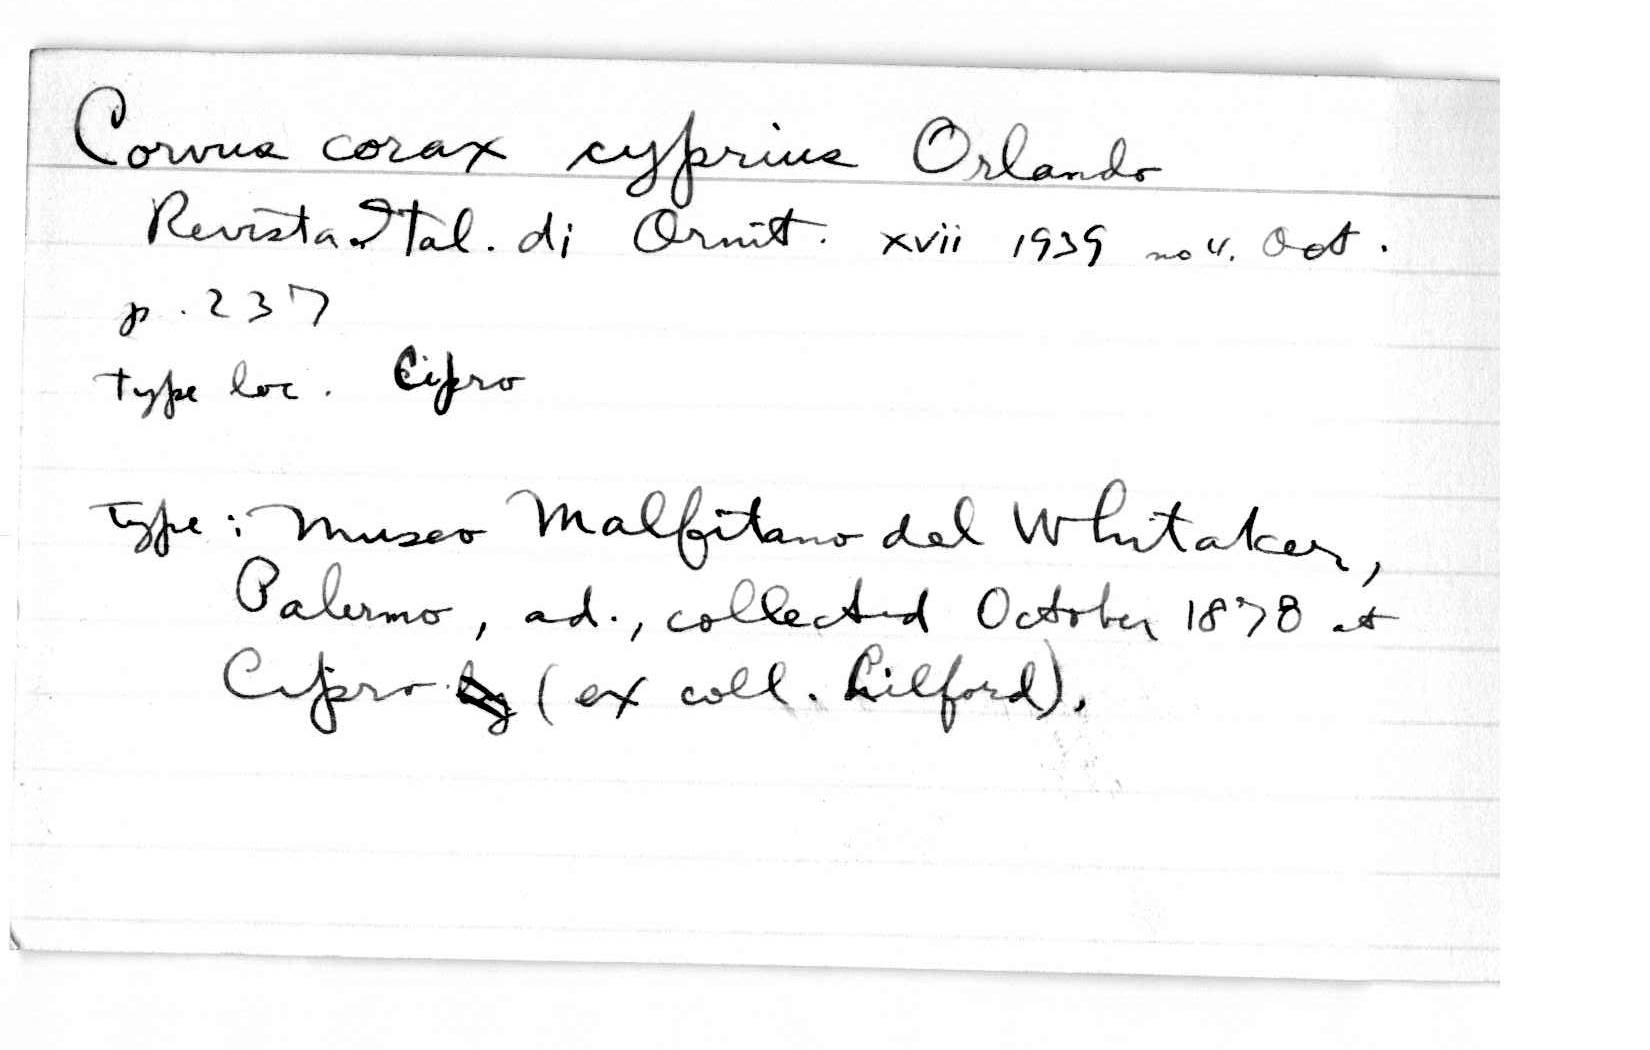 Corvus corax cyprius Orlando
Revista Ital. di Ornit. xvii 1939 no 4. Oct.
p. 237
type loc. Cipro
type: Museo Malfitano del Whitaker,
Palermo, ad., collected October 1878 at
Cipro (ex coll. Lilford).